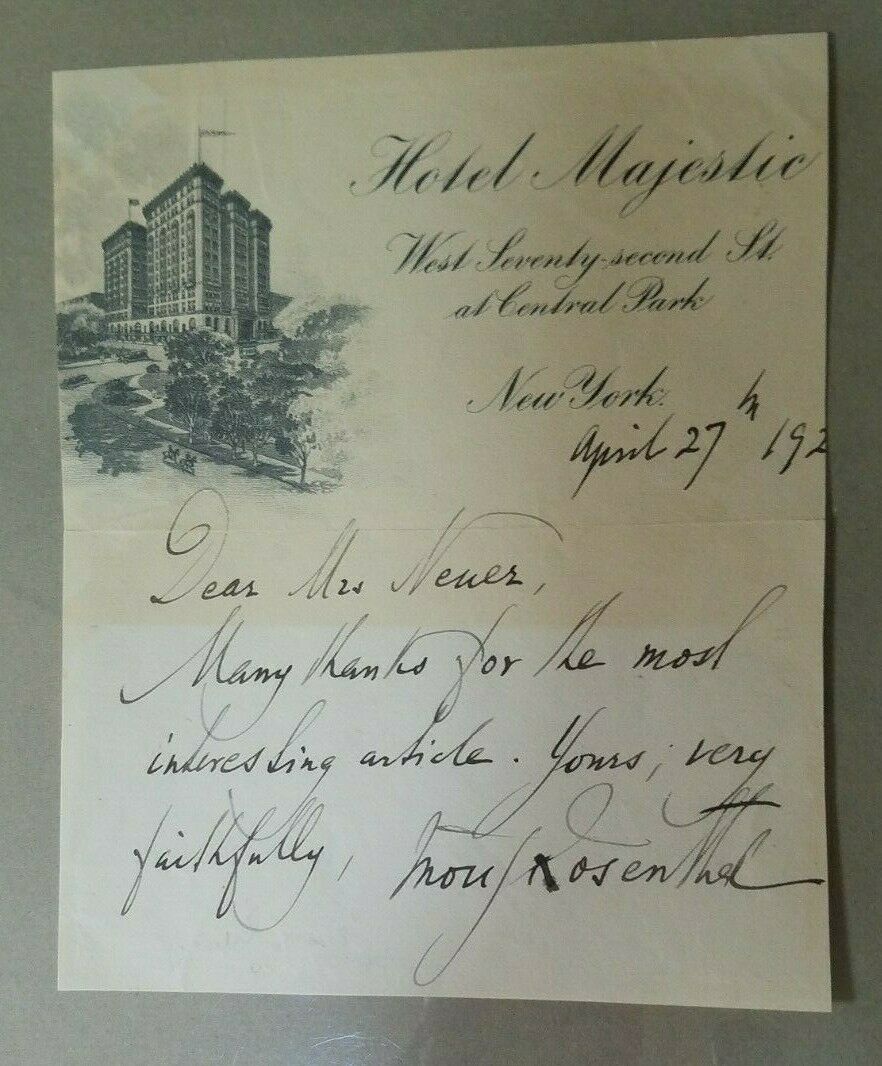 Hotel Majestic
West Seventy-second St.
at Central Park
New York.
April 27th 192
Dear Mrs Neuer,
Many thanks for the most
interesting article. Yours, very
faithfully, Rosenthal